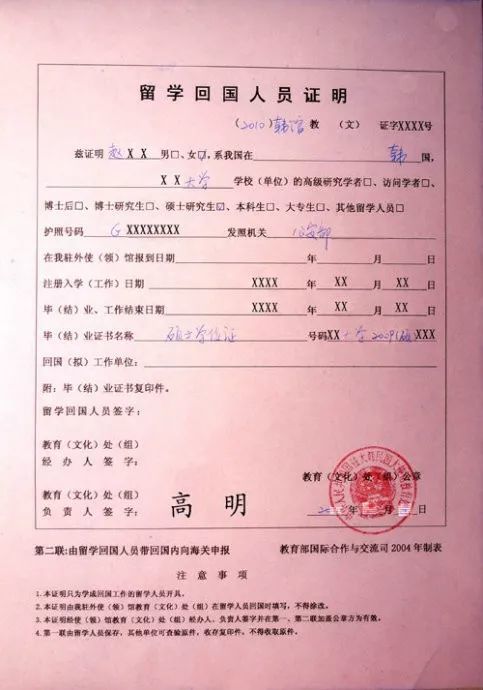 留学回国人员证明
(2010)韩馆教(文) 证字XXXX号
兹证明 赵XX 男□、女☑,系我国在 韩 国,
XX大学 学校(单位)的高级研究学者□、访问学者□、
博士后□、博士研究生□、硕士研究生☑、本科生□、大专生□、其他留学人员□
护照号码 G XXXXXXXX 发照机关 公安部
在我驻外使(领)馆报到日期 年 月 日
注册入学(工作)日期 XXXX 年 XX 月 XX 日
毕(结)业、工作结束日期 XXXX 年 XX 月 XX 日
毕(结)业证书名称 硕士学位证 号码XX大学2009(硕)XXX
回国(拟)工作单位:
附:毕(结)业证书复印件。
留学回国人员签字:
教育(文化)处(组)
经办人签字:
教育(文化)处(组)公章
教育(文化)处(组)
负责人签字: 高明
年 月 日
第二联:由留学回国人员带回国内向海关申报 教育部国际合作与交流司2004年制表
注意事项
1.本证明只为学成回国工作的留学人员开具。
2.本证明由我驻外使(领)馆教育(文化)处(组)在留学人员回国时填写,不得涂改。
3.本证明经使(领)馆教育(文化)处(组)经办人、负责人签字并在第一、第二联加盖公章方为有效。
4.第一联由留学人员保存,其他单位可查验原件,收存复印件,不得收取原件。